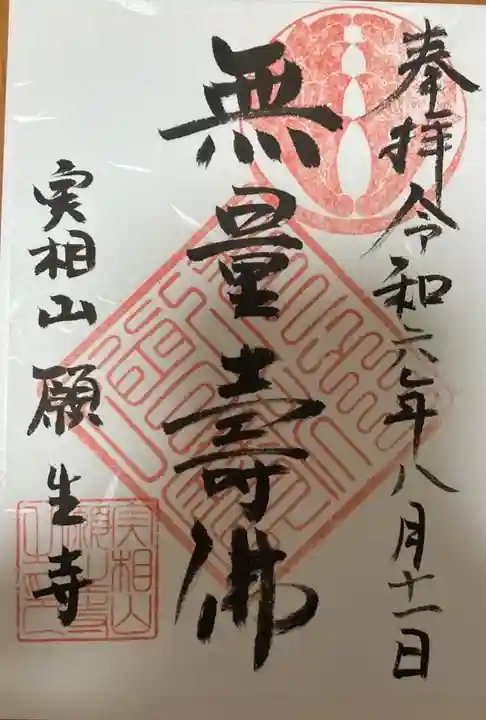 奉拝令和六年八月十一日
無量壽佛
実相山願生寺
実相山
願生寺